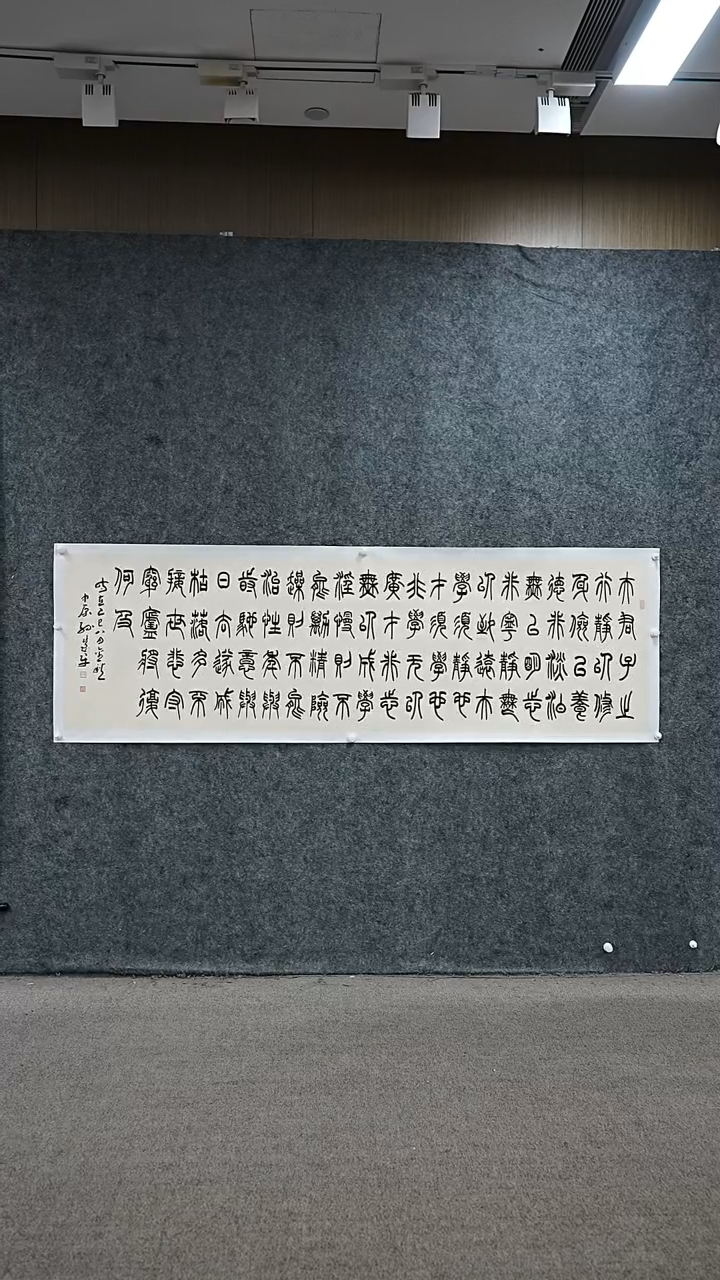 夫君子之
行靜以修
身儉以養
德非淡泊
無以明志
非寧靜無
以致遠夫
學須靜也
才須學也
非學无以
廣才非志
無以成學
淫慢則不
能勵精險
躁則不能
治性年與
時馳意與
日去遂成
枯落多不
接世悲守
窮廬將復
何及
时在乙巳八月
中原